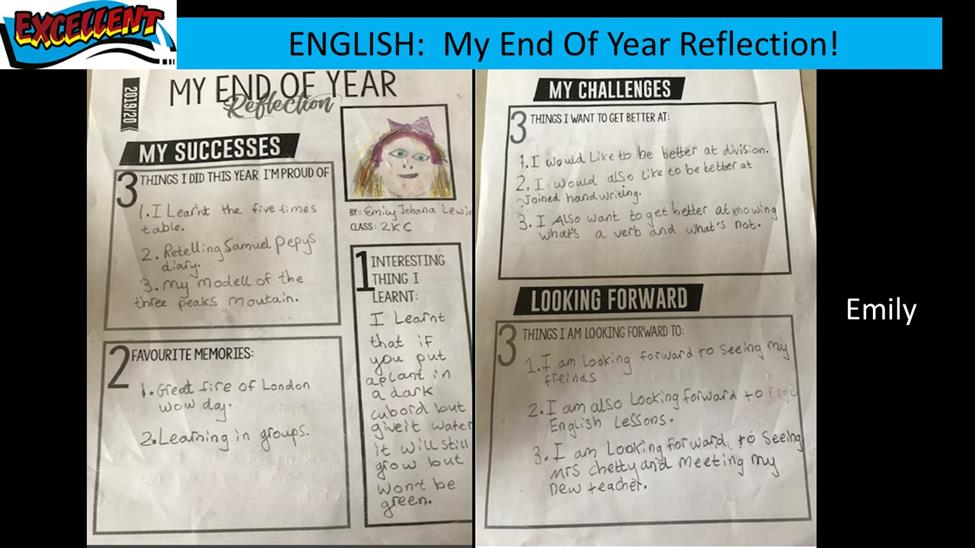 EXCELLENT
ENGLISH:  My End Of Year Reflection!
2019/20
MY END OF YEAR
Reflection
MY SUCCESSES
3 THINGS I DID THIS YEAR I'M PROUD OF
1. I Learnt the five times
table.
2. Retelling Samuel Pepys
diary.
3. My modell of the
three peaks moutain.
BY: Emily Johana
CLASS: 2KC
2 FAVOURITE MEMORIES:
1. Great fire of London
wow day.
2. Learning in groups.
1 INTERESTING
THING I
LEARNT:
I Learnt
that if
you put
a plant in
a dark
cubord but
give it water
it will still
grow but
won't be
green.
MY CHALLENGES
3 THINGS I WANT TO GET BETTER AT:
1. I would Like to be better at division.
2. I would also like to be better at
Joined handwriting.
3. I Also want to get better at knowing
what's a verb and what's not.
LOOKING FORWARD
3 THINGS I AM LOOKING FORWARD TO:
1. I am looking forward to seeing my
freinds
2. I am also Looking forward to
English Lessons.
3. I am Looking forward to seeing
Mrs Chetty and meeting my
new teacher.
Emily